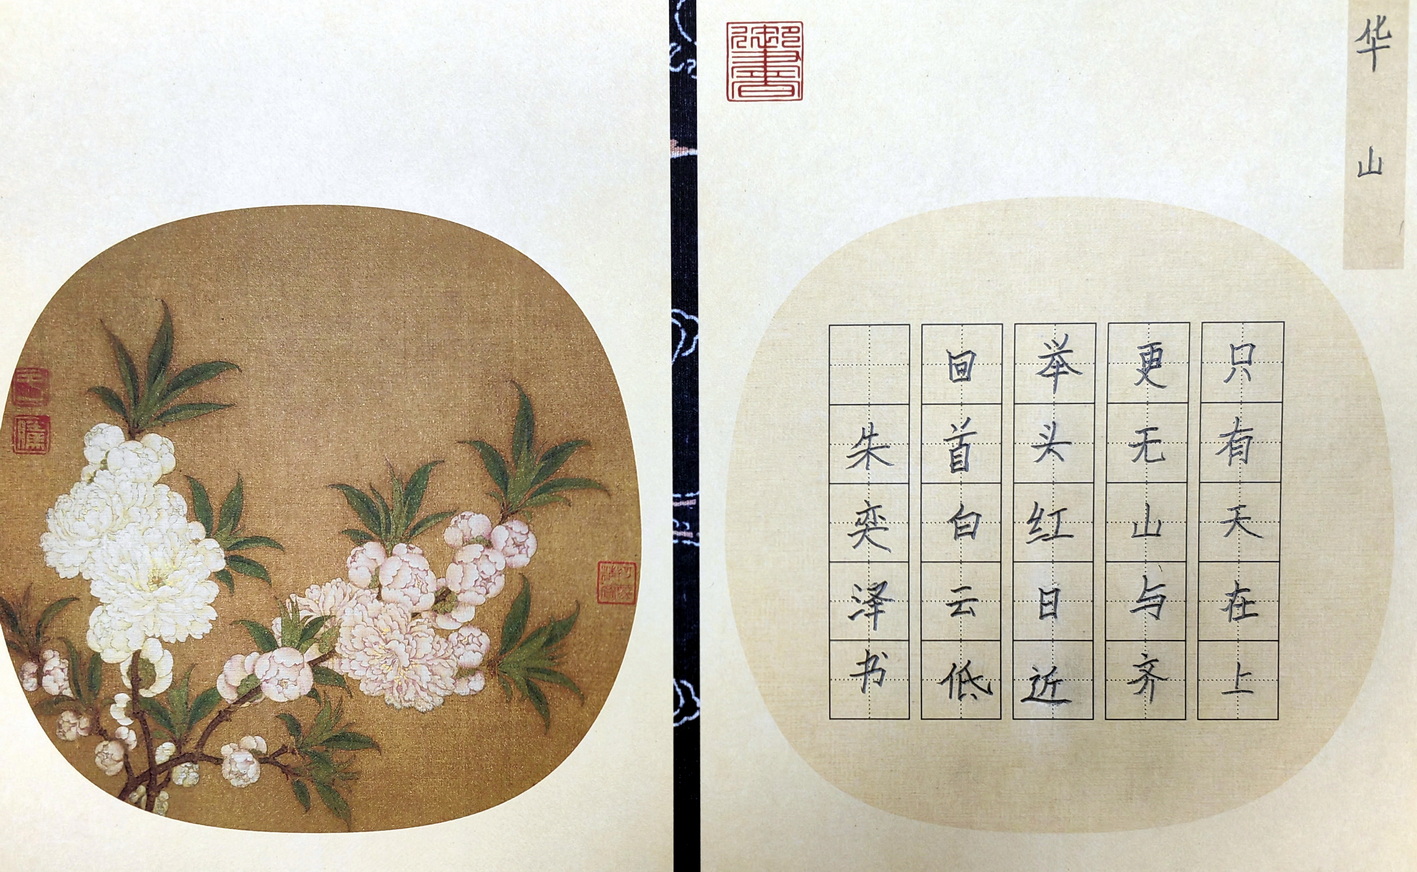 华山
只有天在上
更无山与齐
举头红日近
回首白云低
朱奕泽书